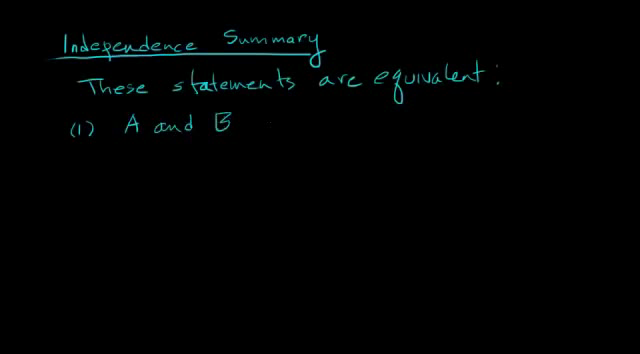 Independence Summary
These statements are equivalent:
(1) A and B